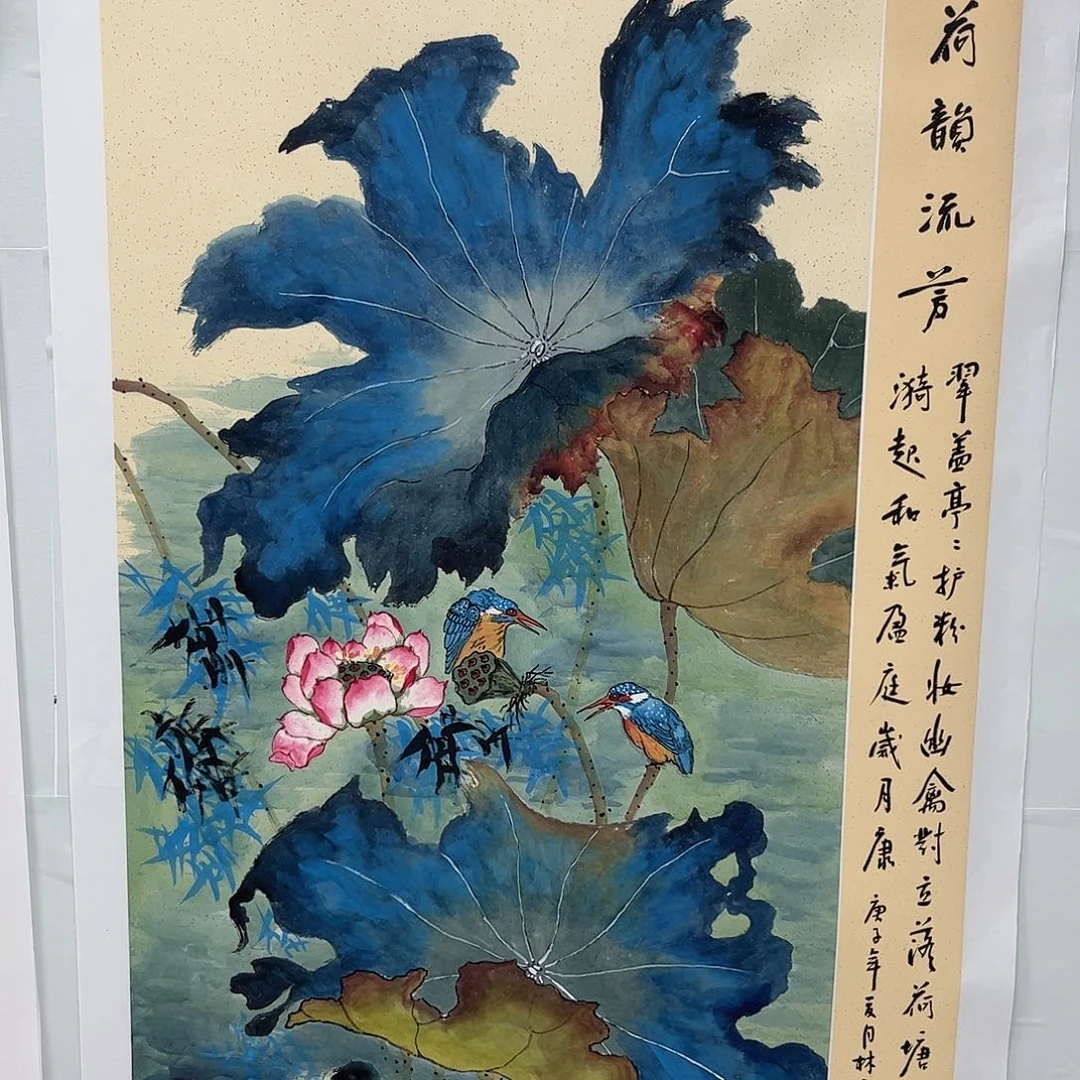 荷韻流芳
翠盖亭〻护粉妆幽禽對立落荷塘
漪起和氣盈庭歲月康
庚子年夏月林